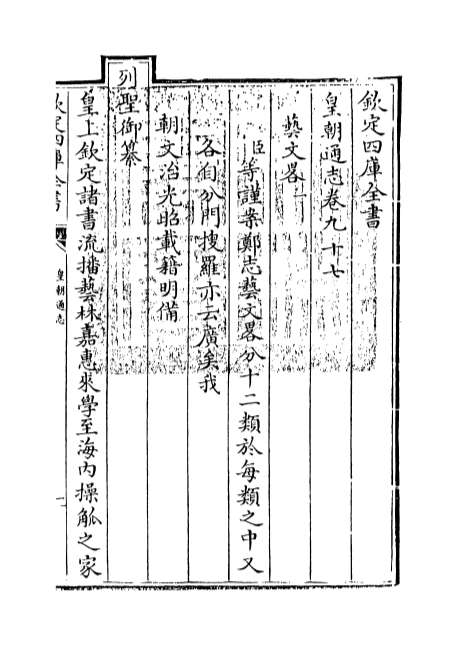 欽定四庫全書
皇朝通志卷九十七
藝文畧一
臣等謹案鄭志藝文畧分十二類於每類之中又
各自分門搜羅亦云廣矣我
朝文治光昭載籍明備
列聖御纂
皇上欽定諸書流播藝林嘉惠來學至海内操觚之家
欽定四庫全書
皇朝通志
一